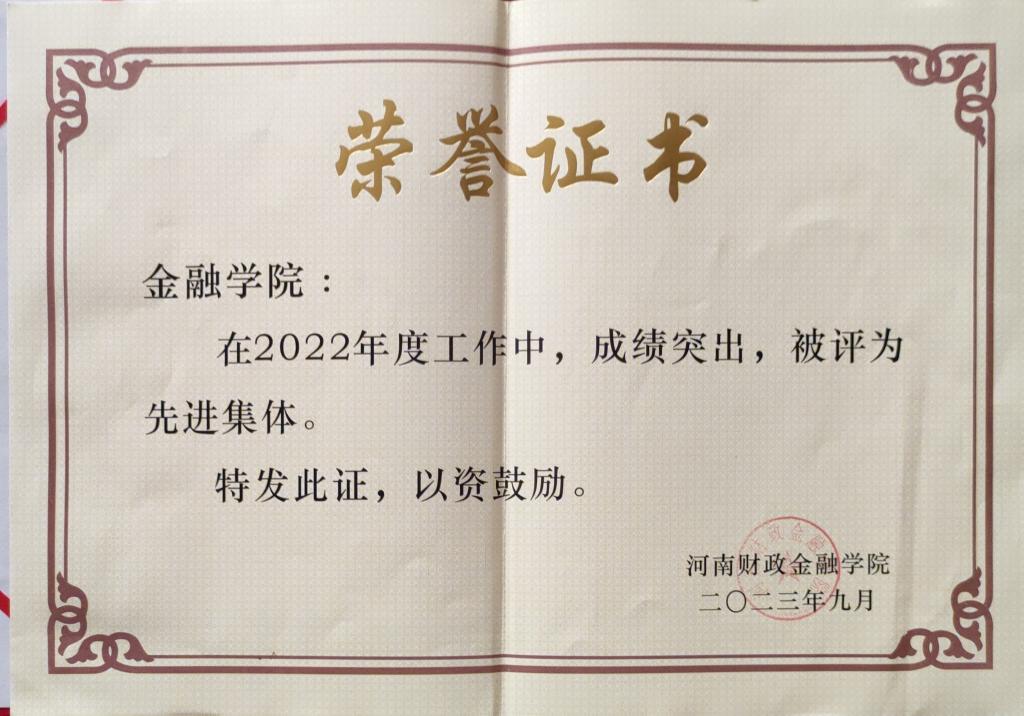 荣誉证书
金融学院：
在2022年度工作中，成绩突出，被评为
先进集体。
特发此证，以资鼓励。
河南财政金融学院
二〇二三年九月